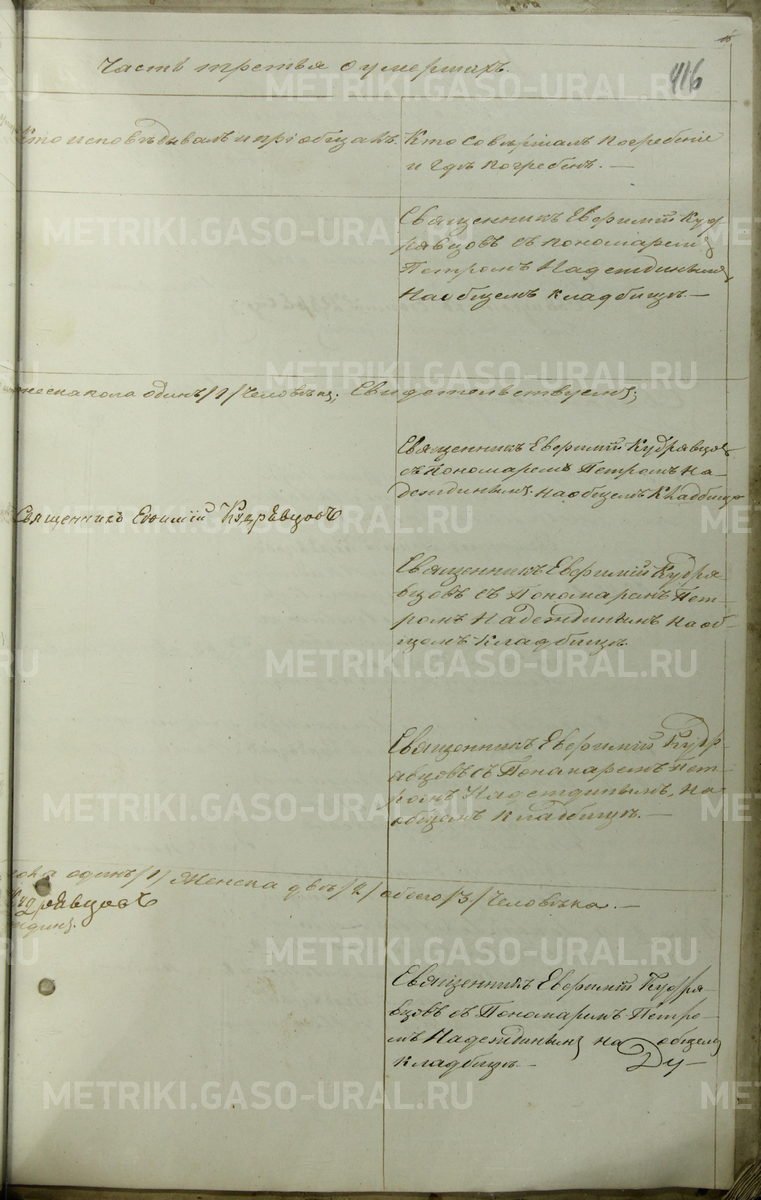 Часть третья о умершихъ.
416
Кто исповѣдывалъ и пріобщалъ.
Кто совершалъ погребеніе
и гдѣ погребенъ. —
Священникъ Евѳимій Куд
рявцовъ съ пономаремъ
Петромъ Надеждинымъ
На общемъ кладбищѣ —
одинъ /1/ Человѣкъ; Свидетельствуемъ;
Священникъ Евѳимій Кудрявцовъ
съ Пономаремъ Петромъ На-
деждинымъ на общемъ Кладбищѣ
Священникъ Евѳимій Кудрявцовъ
Священникъ Евѳимій Кудря
вцовъ съ Пономаремъ Пет-
ромъ Надеждинымъ На об-
щемъ Кладбищѣ.
Священникъ Евѳимій Кудр-
явцовъ съ Понамаремъ Пет-
ромъ Надеждинымъ, На
общемъ Кладбищѣ. —
одинъ /1/ Женска двѣ /2/ обоего /3/ Человѣка. —
Кудрявцовъ
Священникъ Евѳимій Кудря-
вцовъ съ Понамаремъ Петро-
мъ Надеждинымъ на общемъ
кладбищѣ —
Ду —
METRIKI.GASO-URAL.RU